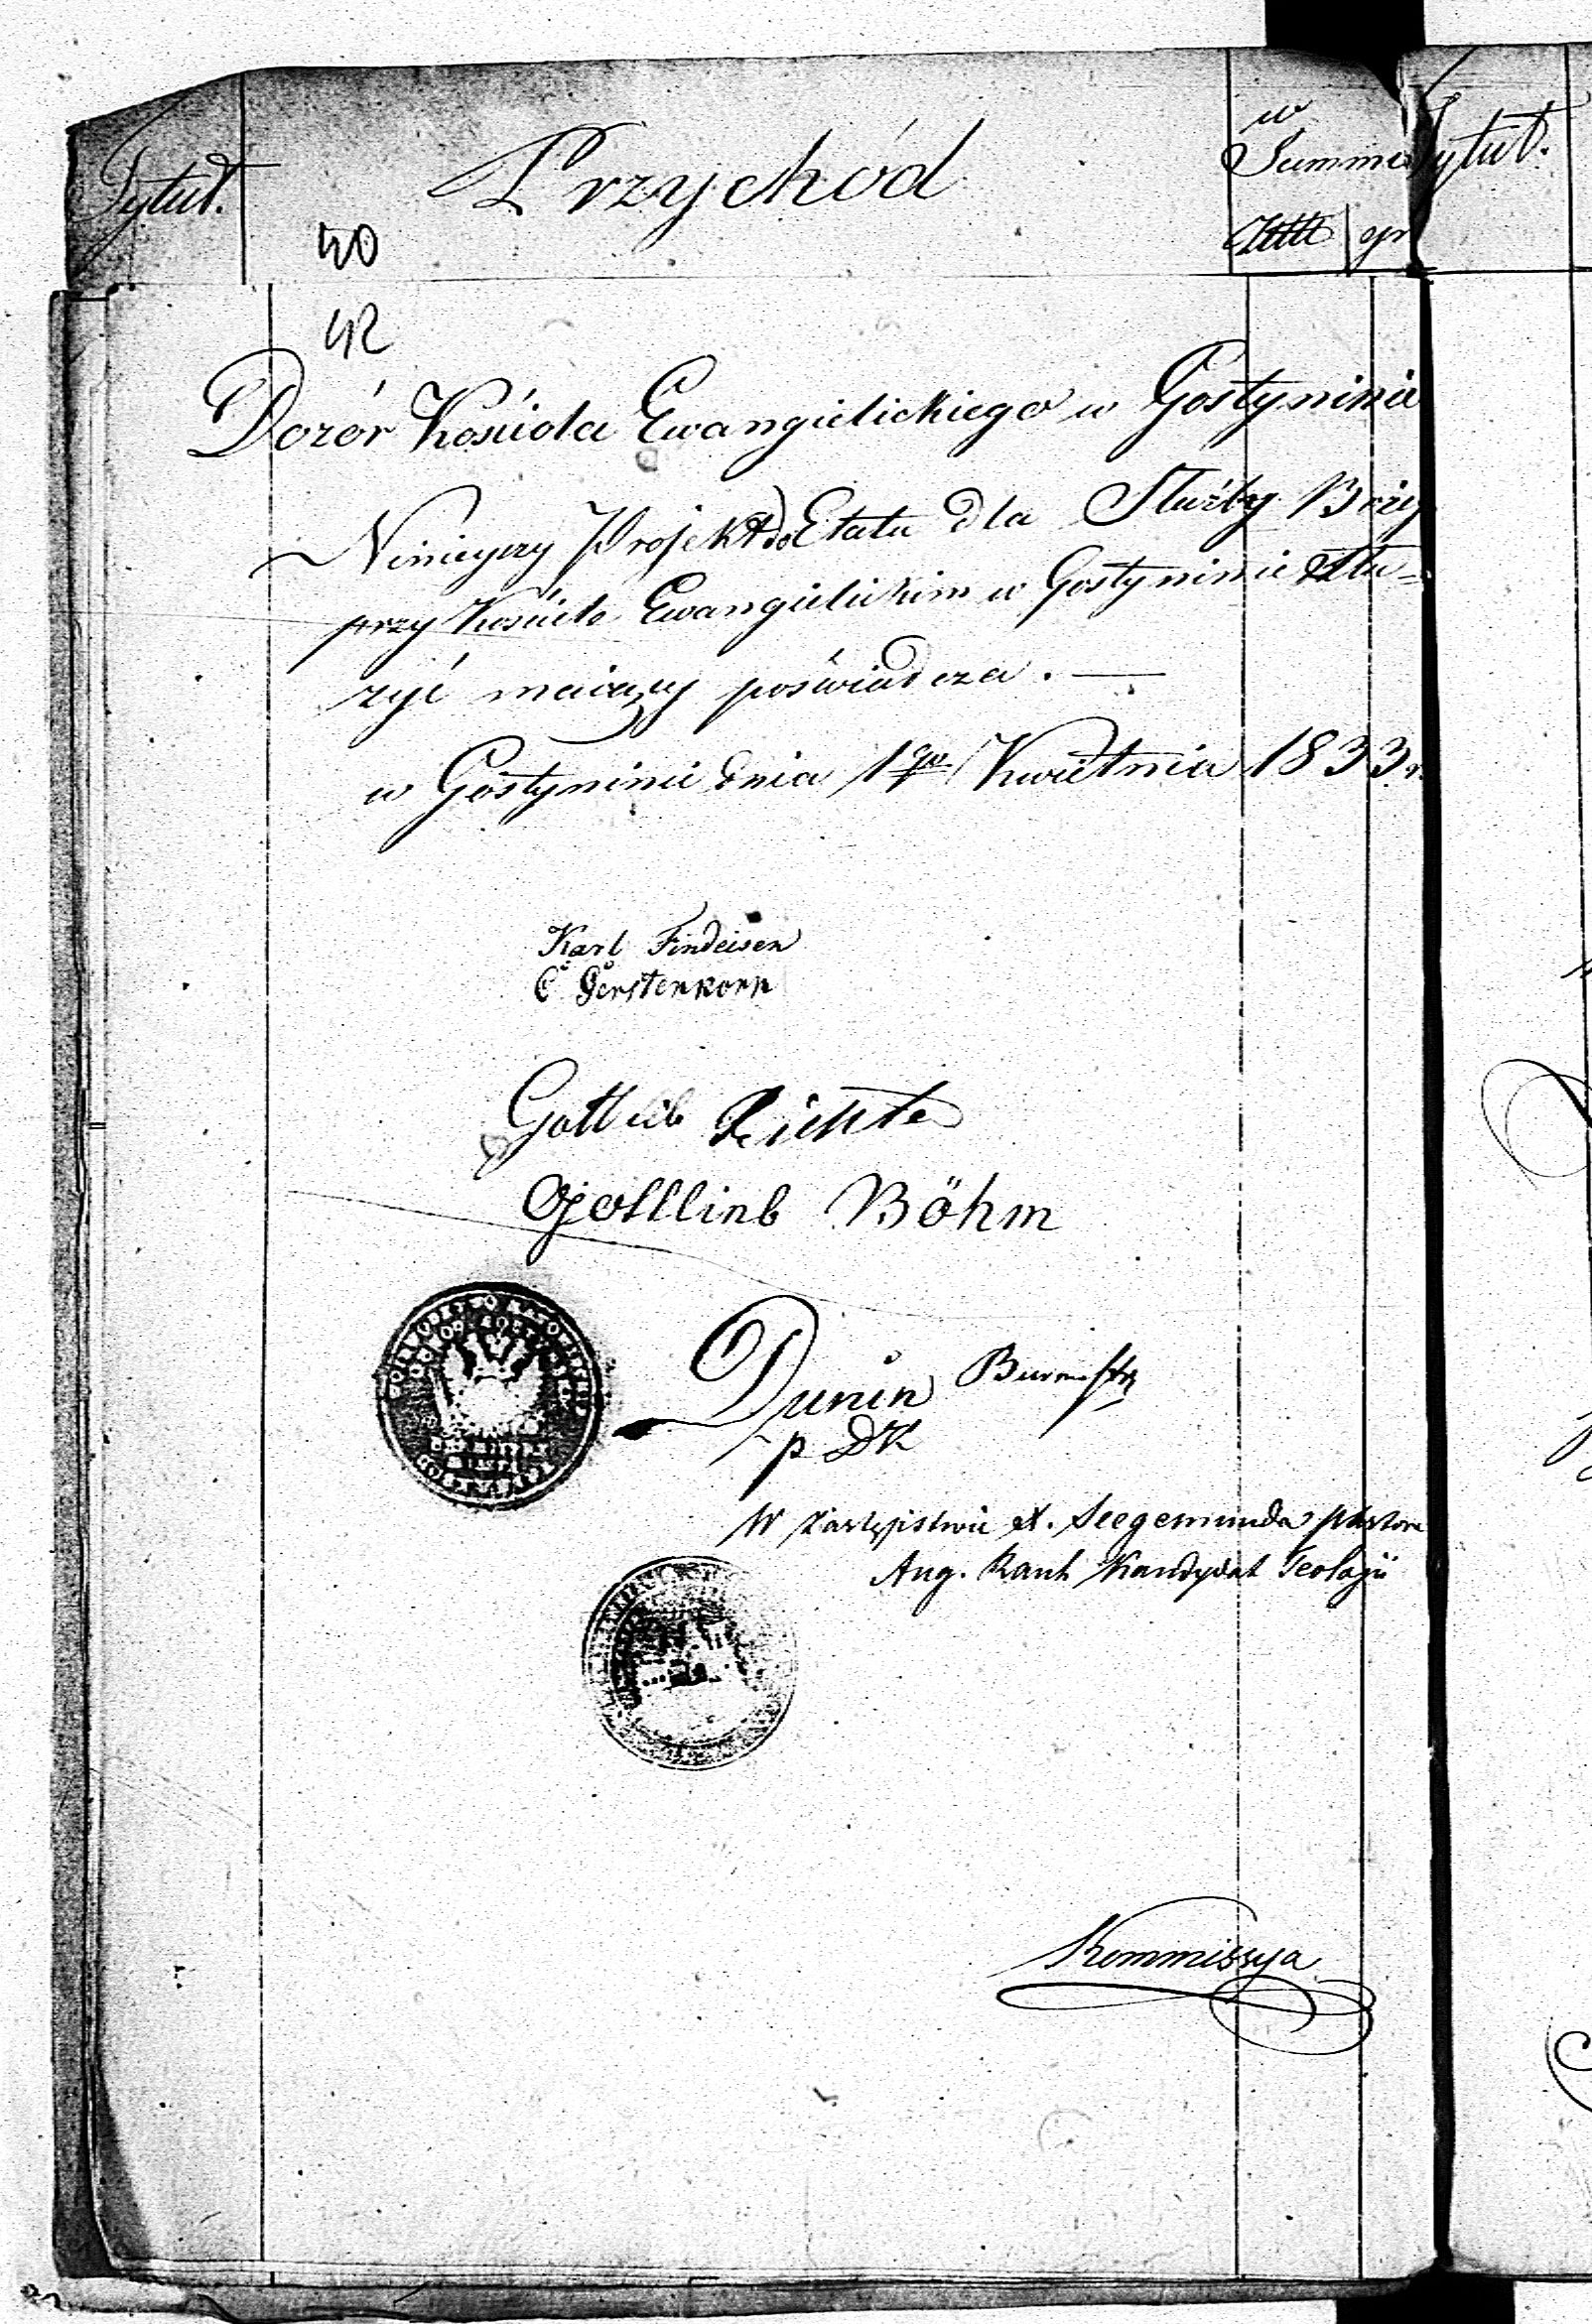 Tytuł.
Przychód
w
Summie
Złtt gr
Tytuł.
40
42
Dozór Kościoła Ewangielickiego w Gostyninie
Ninieyszy Projekt do Etatu dla Służby Bożey
przy Kościele Ewangielickim w Gostyninie słu-
żyć maiący poświadcza. —
w Gostyninie dnia 1go Kwietnia 1833 r.
Karl Findeisen
C Gerstenkorn
Gottlieb Richter
Gottlieb Böhm
Dunin Burmistrz
p DK
W zastępstwie X. Seegemunda pastora
Aug. Rauh Kandydat Teologii
Kommissya